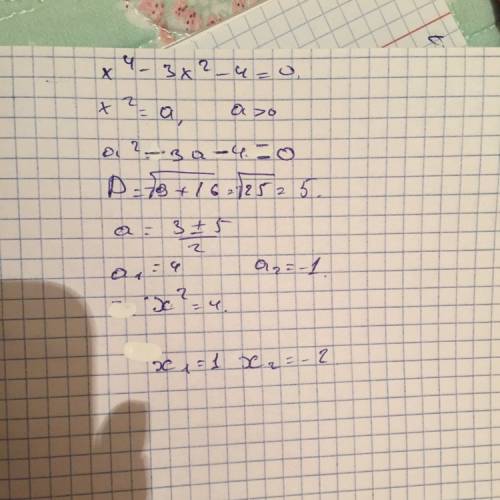 x⁴ - 3x² - 4 = 0.
x² = a, a>0
a² - 3a - 4 = 0
D = √9 + 16 = √25 = 5.
a = 3 ± 5 / 2
a₁ = 4 a₂ = -1.
x² = 4.
x₁ = 1 x₂ = -2